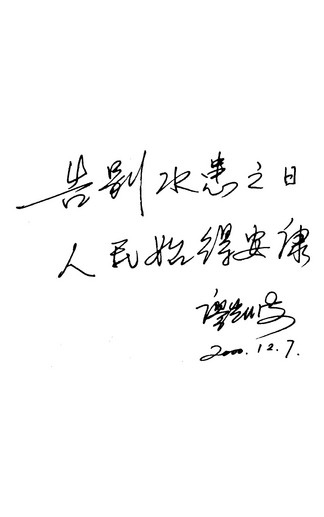 告别水患之日
人民始得安康
2000.12.7.